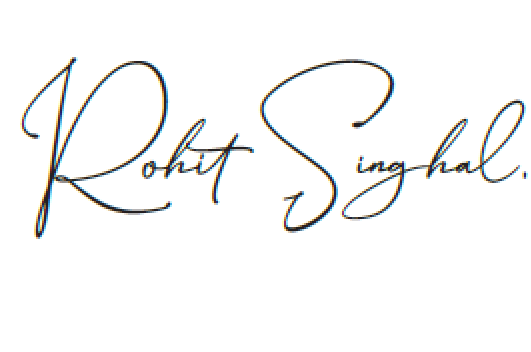 Rohit Singhal.